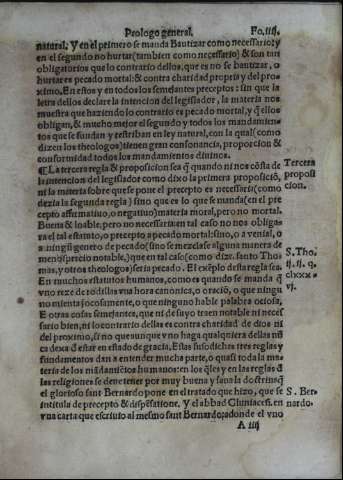 Prologo general. Fo.iiij.
natural. Y en el primero se manda Bautizar como necessario: y
en el segundo no hurtar (tambien como necessario) & son tan
obligatorios que lo contrario dellos, que es no se bautizar, o
hurtar es pecado mortal: & contra charidad propria y del pro
ximo. En estos y en todos los semejantes preceptos: sin que la
letra dellos declare la intencion del legislador, la materia nos
muestra que haziendo lo contrario es pecado mortal, y q̃ ellos
obligan, & mucho mejor el segundo y todos los mandamien
tos que se fundan y estriban en ley natural, con la qual (como
dizen los theologos) tienen gran consonancia, proporcion &
conformidad todos los mandamientos diuinos.
¶ La tercera regla & proposicion sea q̃ quando ni nos cõsta de
la intencion del legislador como dixo la primera proposiciõ,
ni la materia sobre que se pone el precepto es necessaria (como
dezia la segunda regla) sino que es lo que se manda (en el pre
cepto affirmatiuo, o negatiuo) materia moral, pero no mortal.
Buena & loable, pero no necessaria: en tal caso no nos obliga
ra el tal estatuto, o precepto a pecado mortal: sino, o a venial, o
a ningũ genero de pecado (sino se mezclase alguna manera de
menosprecio notable,) que en tal caso (como dize. santo Tho
mas, y otros theologos) seria pecado. El exẽplo desta regla sea.
En muchos estatutos humanos, como es quando se manda q̃
vno reze de rodillas vna hora canonica, o oraciõ, o que ningu
no mienta jocosamente, o que ninguno hable palabra ociosa,
E otras cosas semejantes, que ni de suyo traen notable ni neces
sario bien, ni lo contrario dellas es contra charidad de dios ni
del proximo, si no que aunque vno haga qualquiera dellas nũ
ca dexa de estar en estado de gracia. E las susodichas tres reglas y
fundamentos dan a entender mucha parte, o quasi toda la ma
teria de los mãdamiẽtos humanos: en los q̃les y en las reglas de
las religiones se deue tener por muy buena y sana la doctrina q̃
el glorioso sant Bernardo pone en el tratado que hizo, que se
intitula de precepto & dispẽsatione. Y el abbad Cluniacẽs. en
vna carta que escriuio al mesmo sant Bernardo: adonde el vno
A iiij
Tercera
proposi
cion.
S. Tho.
ij. ij. q.
clxxx
vj.
S. Ber-
nardo.